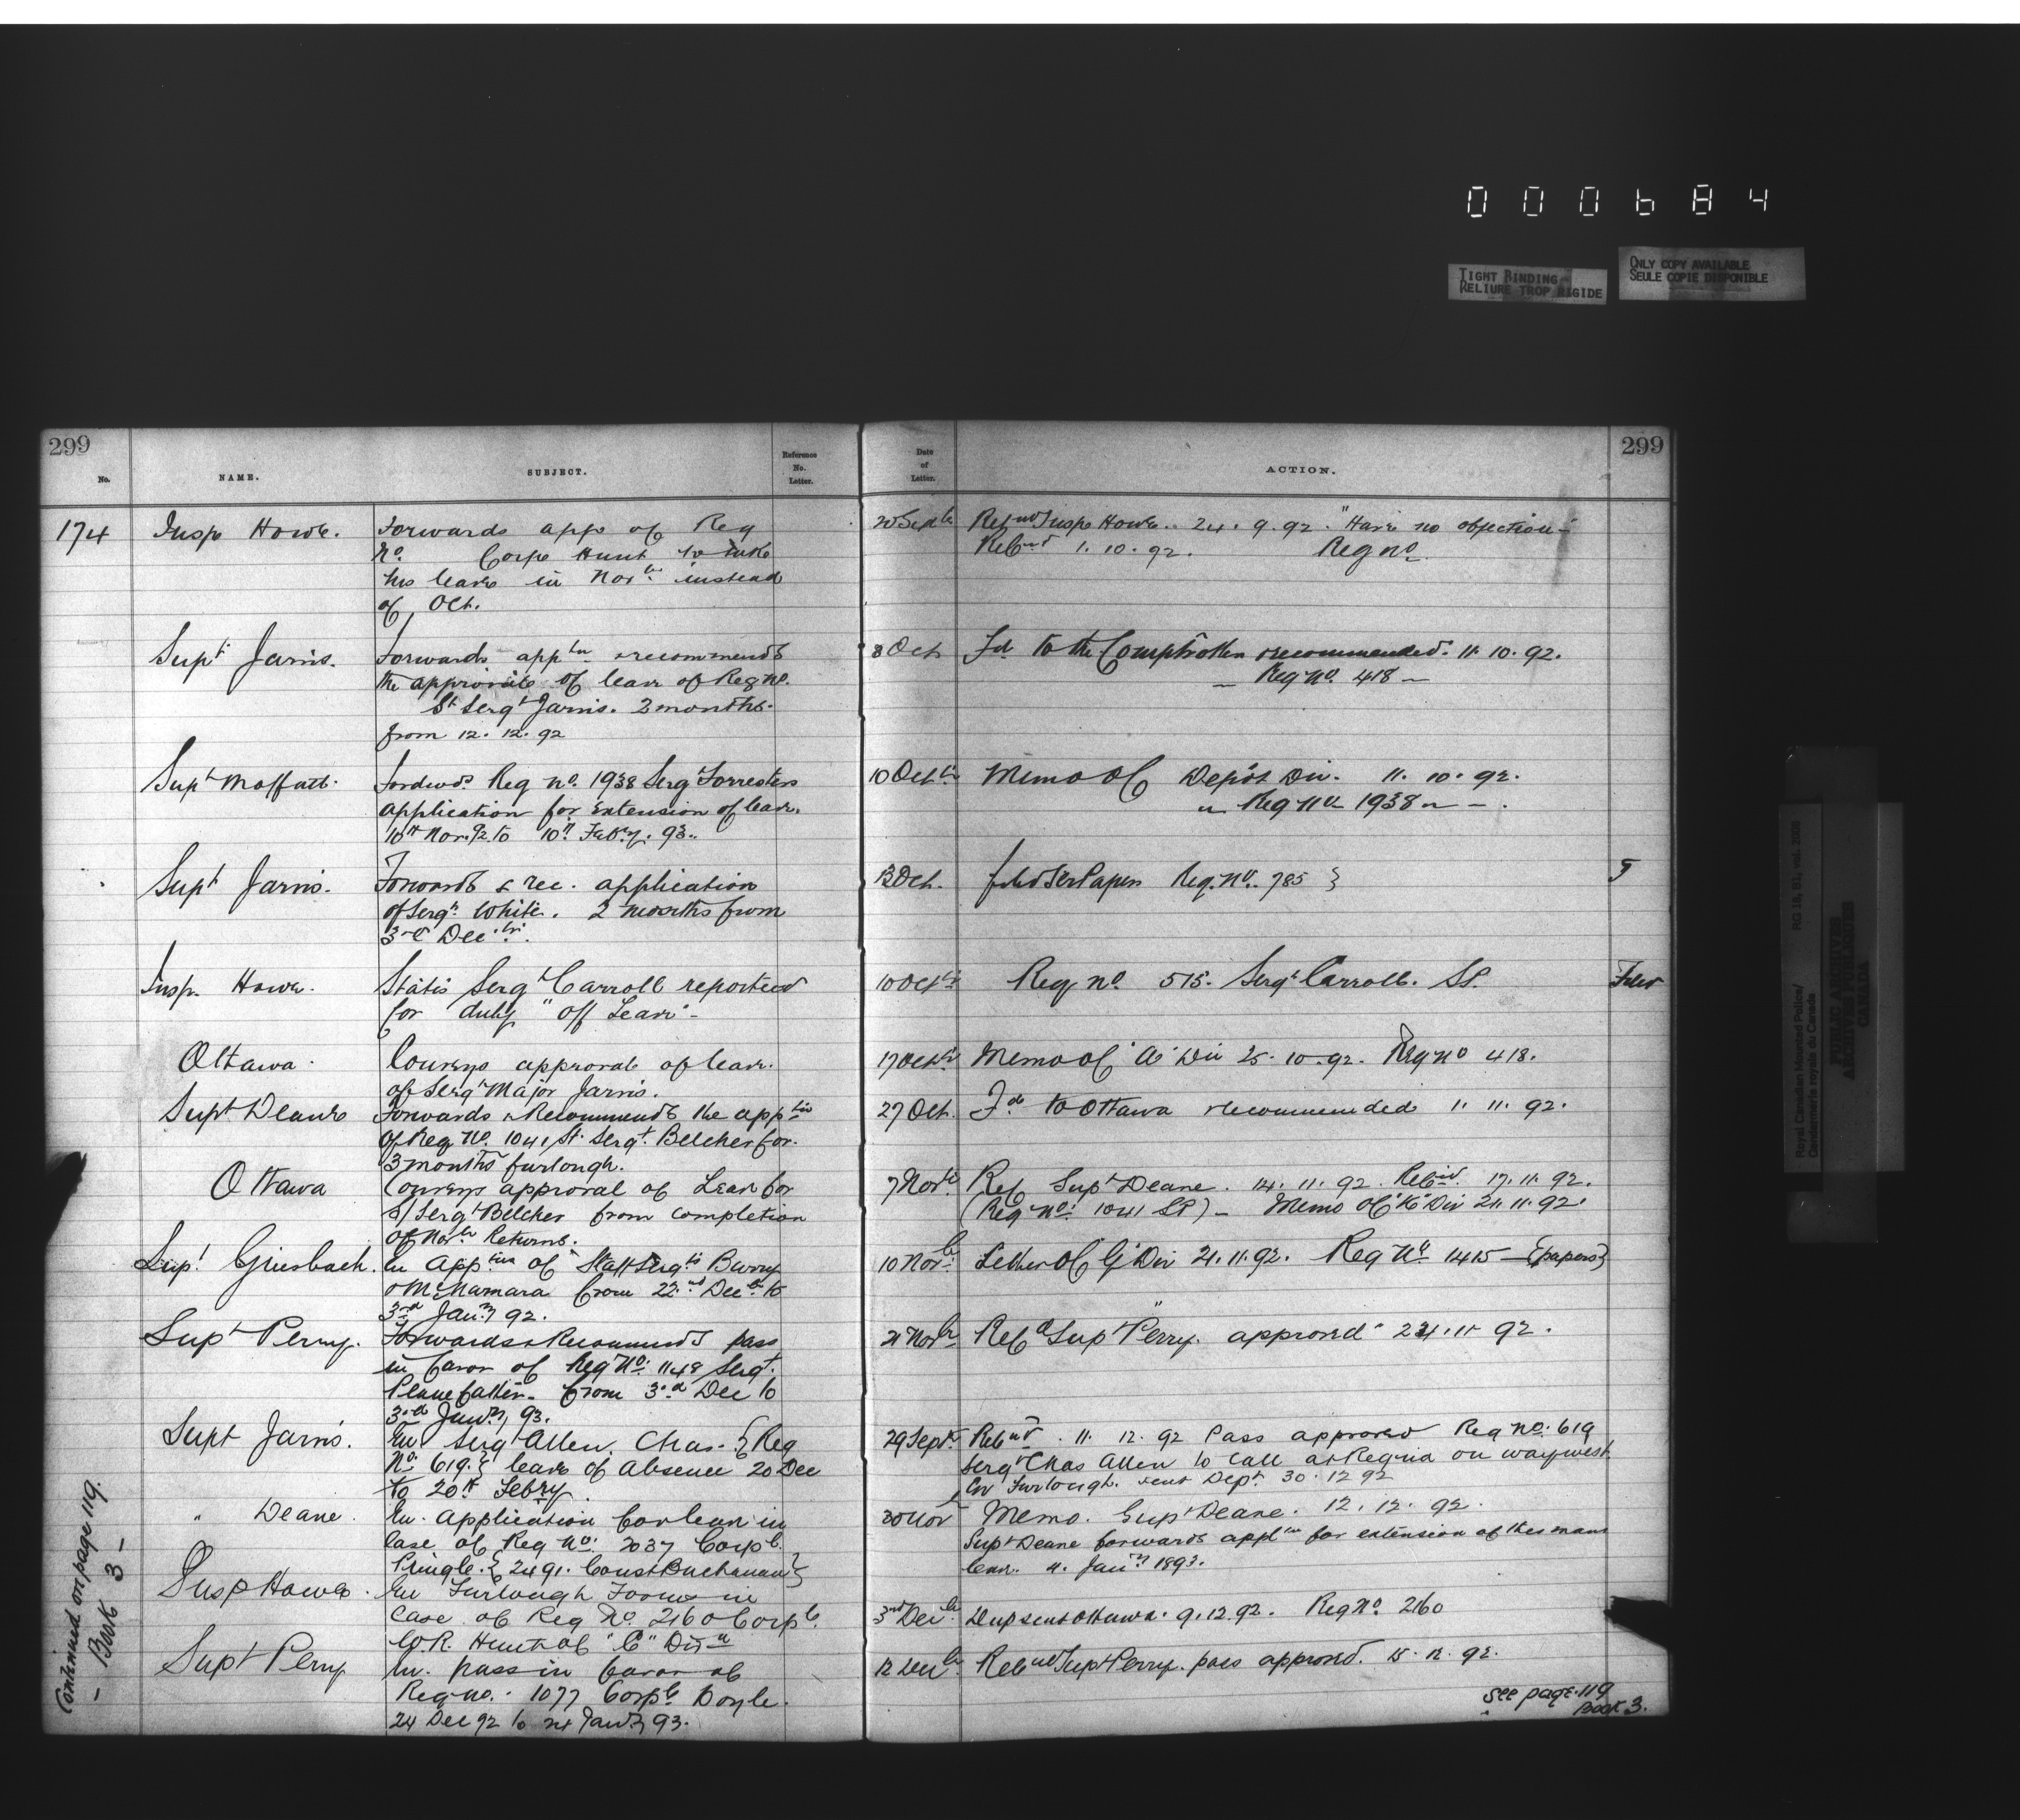 000684
TIGHT BINDING
RELIURE TROP RIGIDE
ONLY COPY AVAILABLE
SEULE COPIE DISPONIBLE
299
No.
NAME.
SUBJECT.
Reference No. Letter.
Date of Letter.
ACTION.
299
174 Insp Howe. Forwards app of Reg 20 Septbr Retnd Insp Howe. 24.9.92. "Have no objection"
No. Corpl Hunt to take Retnd 1.10.92. Reg no
his leave in Novbr instead
of Oct.
Supt Jarvis. Forwards apptn & recommends 8 Oct Fd to the Comptroller recommended. 11.10.92.
the approval of leave of Reg no. — Reg No. 418 —
St Sergt Jarvis. 2 months.
from 12.12.92
Supt Moffatt. Fordwds Reg no. 1938 Sergt Forresters 10 Octbr Memo OC Depot Div. 11.10.92.
application for extension of leave. Reg No 1938
10th Nov. 92 to 10th Febry. 93.
Supt Jarvis. Forwards & rec. application 13 Oct. filed Papers Reg. No. 785 } F
of Sergt White. 2 months from
3rd Decbr.
Insp. Howe. States Sergt Carroll reported 10 Octbr Reg no. 515. Sergt Carroll. SP. Filed
for "duty" off Leave -
Ottawa. Conveys approval of leave. 17 Octbr Memo OC "A" Div 25.10.92. Reg no 418.
of Sergt Major Jarvis.
Supt Deane Forwards & Recommends the apptn 27 Oct. Fd to Ottawa recommended 1.11.92.
of Reg No. 1041 St. Sergt. Belcher for.
3 months furlough.
Ottawa Conveys approval of Leave for 7 Novbr Ref Supt Deane. 14.11.92. Retnd. 17.11.92.
S/Sergt Belcher from completion (Reg No: 1041 SP) — Memo OC "K" Div 21.11.92.
of Novbr Returns.
Supt Griesbach. En apptn of Staff Sergts Barry 10 Novbr. Letter OC "G" Div 21.11.92. Reg No 1415 — (papers)
& McNamara from 22nd Decbr to
3rd Jany 92.
Supt Perry. Forwards & Recommends pass 21 Novbr Retd Supt Perry. approved 24.11.92.
in favor of Reg No: 1148 Sergt.
Pennefather. from 3rd Dec to
3rd Jany, 93.
Supt Jarvis. En. Sergt Allen. Chas. {Reg 29 Septbr Retnd. 11.12.92 Pass approved Reg No: 619
No: 619.} leave of Absence 20 Dec Sergt Chas Allen to call at Regina on way west.
to 20th Febry. on Furlough. sent Dept. 30.12.92
" Deane. En. Application for leave in 30 Nov Memo. Supt Deane. 12.12.92.
case of Reg No: 2037 Corpl. Supt Deane forwards appltn for extension of this mans
Pringle. {2491. Const Buchanan} leave. 4. Jany 1893.
Insp Howe. En Furlough Forms in
Case of Reg No. 2160 Corpl. 3rd Decbr Dup sent Ottawa. 9.12.92. Reg No. 2160
W.R. Hunt of "C" Divn
Supt Perry En. pass in favor of 12 Decbr Retnd Supt Perry. pass approved. 15.12.92.
Reg no. 1077 Corpl Doyle.
24 Dec 92 to Jany 93.
see page 119
Book 3.
Continued on page 119.
- Book 3 -
Royal Canadian Mounted Police/
Gendarmerie royale du Canada
RG 18, B1, vol. 2008
PUBLIC ARCHIVES
ARCHIVES PUBLIQUES
CANADA